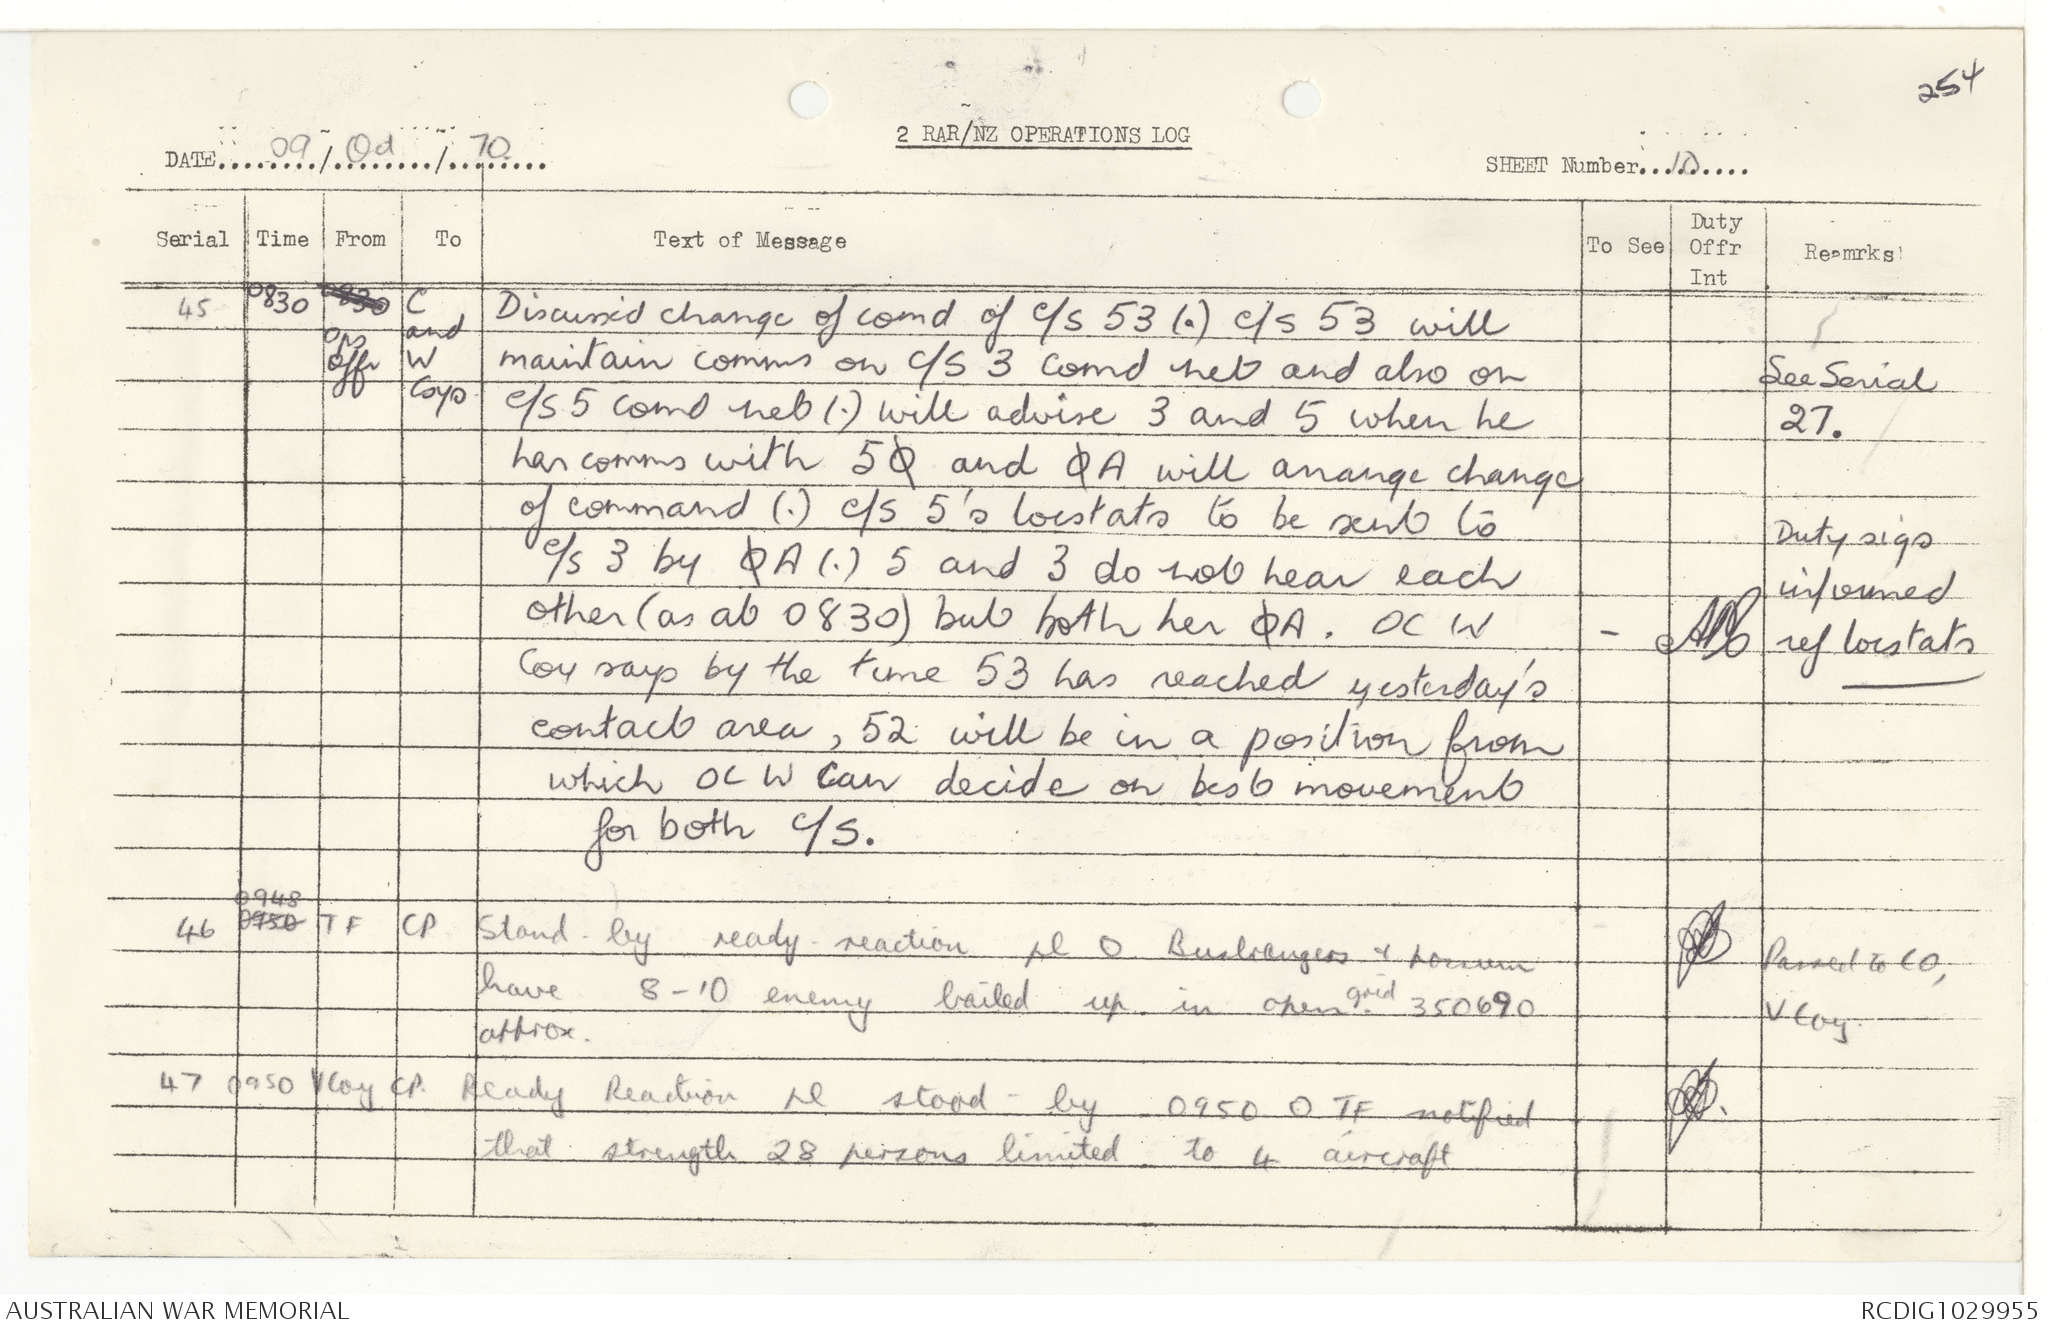 254
2 RAR/NZ OPERATIONS LOG
DATE 09 / Oct / 70
SHEET Number 10
Serial Time From To Text of Message To See Duty Offr Int Remrks
45 0830 0830 Ops Offr C and W Coys
Discussed change of comd of c/s 53 (.) c/s 53 will
maintain comms on c/s 3 comd net and also on
c/s 5 comd net (.) will advise 3 and 5 when he
has comms with 5Ø and ØA will arrange change
of command (.) c/s 5's locstats to be sent to
c/s 3 by ØA (.) 5 and 3 do not hear each
other (as at 0830) but both her ØA. OC W
Coy says by the time 53 has reached yesterday's
contact area, 52 will be in a position from
which OC W can decide on best movement
for both c/s.
-
See Serial
27.
Duty sigs
informed
ref locstats
46 0948 0950 TF CP Stand-by ready-reaction pl O Bushrangers & possum
have 8-10 enemy bailed up in open. grid 350690
approx.
Passed to CO,
V Coy.
47 0950 V Coy CP. Ready Reaction pl stood-by 0950 O TF notified
that strength 28 persons limited to 4 aircraft
AUSTRALIAN WAR MEMORIAL
RCDIG1029955